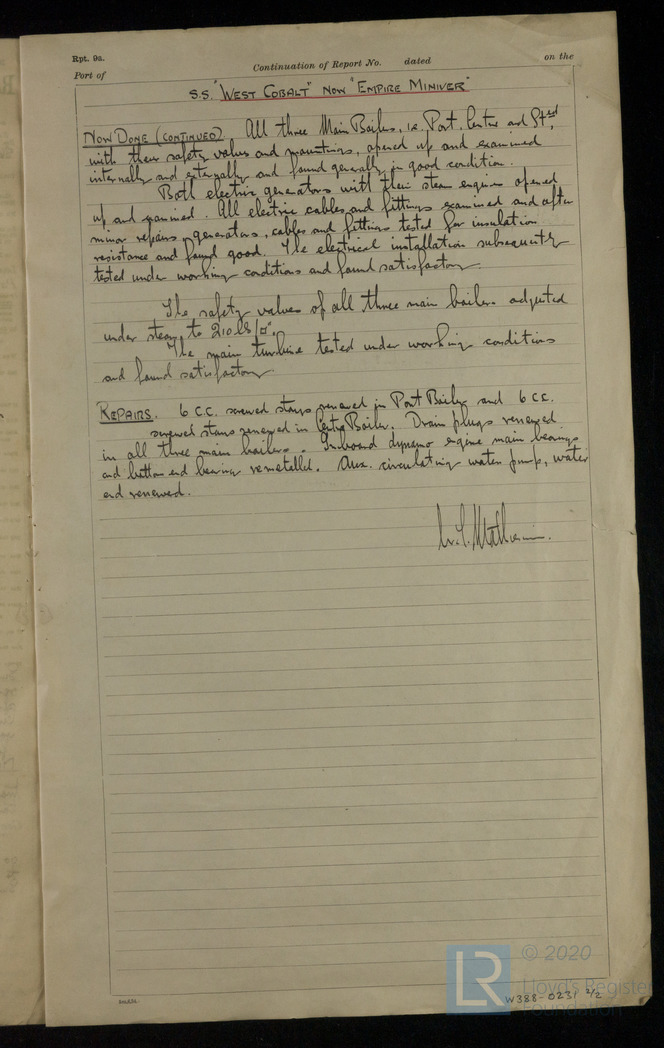 Rpt. 9a.
Port of
Continuation of Report No. dated on the
S.S. "WEST COBALT" NOW "EMPIRE MINIVER"
NOW DONE (CONTINUED). All three Main Boilers, i.e. Port, Centre and Stbd,
with their safety valves and mountings, opened up and examined
internally and externally and found generally in good condition.
Both electric generators with their steam engines opened
up and examined. All electric cables and fittings examined and after
minor repairs, generators, cables and fittings tested for insulation
resistance and found good. The electrical installation subsequently
tested under working conditions and found satisfactory.
The safety valves of all three main boilers adjusted
under steam to 210 lbs/□".
The main turbine tested under working conditions
and found satisfactory
REPAIRS. 6 C.C. screwed stays renewed in Port Boiler and 6 C.C.
screwed stays renewed in Centre Boiler. Drain plugs renewed
in all three main boilers. Inboard dynamo engine main bearings
and bottom end bearing remetalled. Aux. circulating water pump, water
end renewed.
© 2020
LR
Lloyd's Register
Foundation
W388-0231 2/2